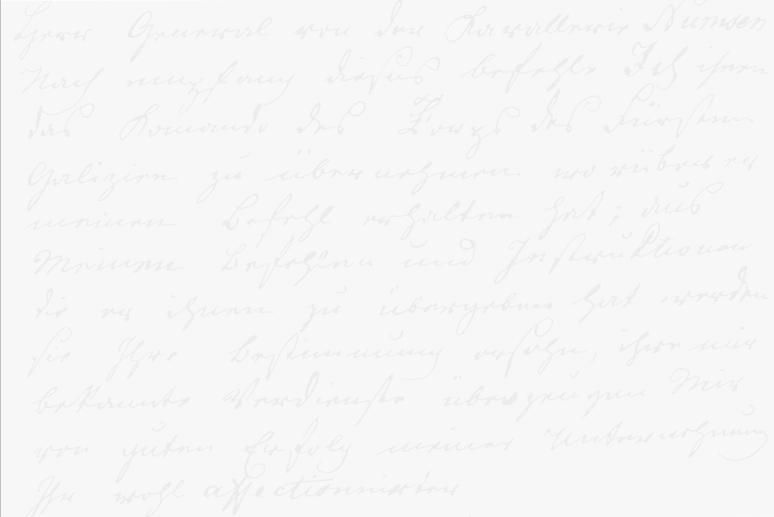 Herr General von der Kavallerie Numsen
Nach empfang dieses befehle Ich ihnen
das Komando des Korps des Fürsten
Galizien zu übernehmen worüber er
meinen Befehl erhalten hat; aus
Meinen Befehlen und Instruktionen
die er ihnen zu übergeben hat werden
sie Ihre Bestimmung ersehn, ihre mir
bekannte Verdienste überzeugen Mir
von guten Erfolg meiner Unternehmung
Ihr wohl affectionnirter